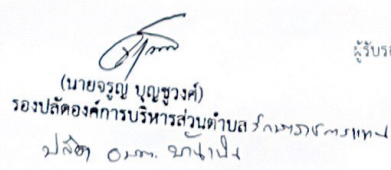 ผู้รับรอ
(นายจรูญ บุญชูวงค์)
รองปลัดองค์การบริหารส่วนตำบล รักษาราชการแทน
ปลัด อบต.